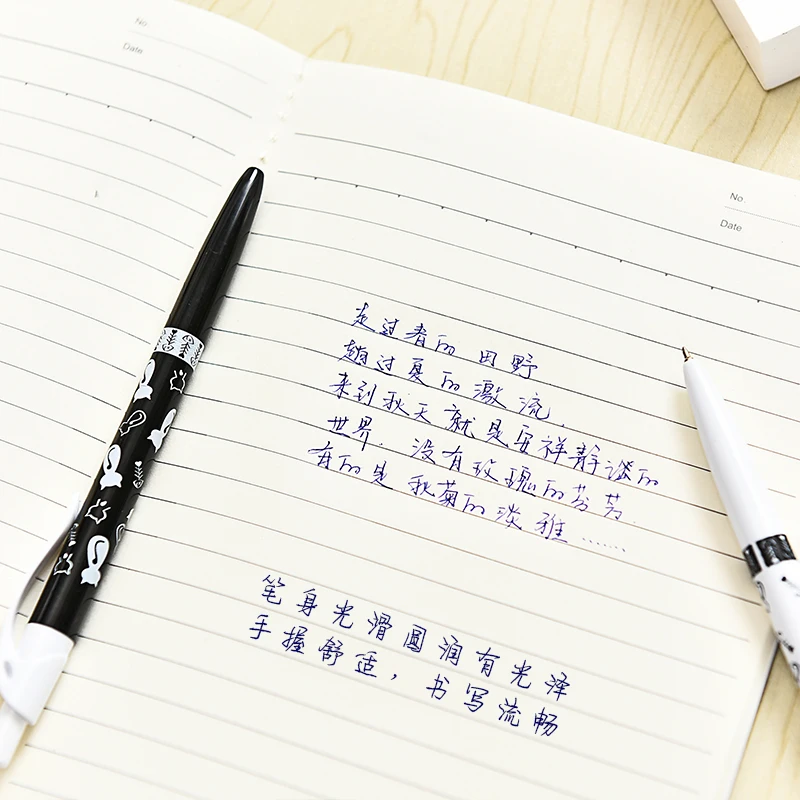 No
Date
No.
Date
走过春的田野
趟过夏的激流
来到秋天就是安祥静谧的
世界. 没有玫瑰的芬芳.
有的是秋菊的淡雅......
笔身光滑圆润有光泽
手握舒适，书写流畅